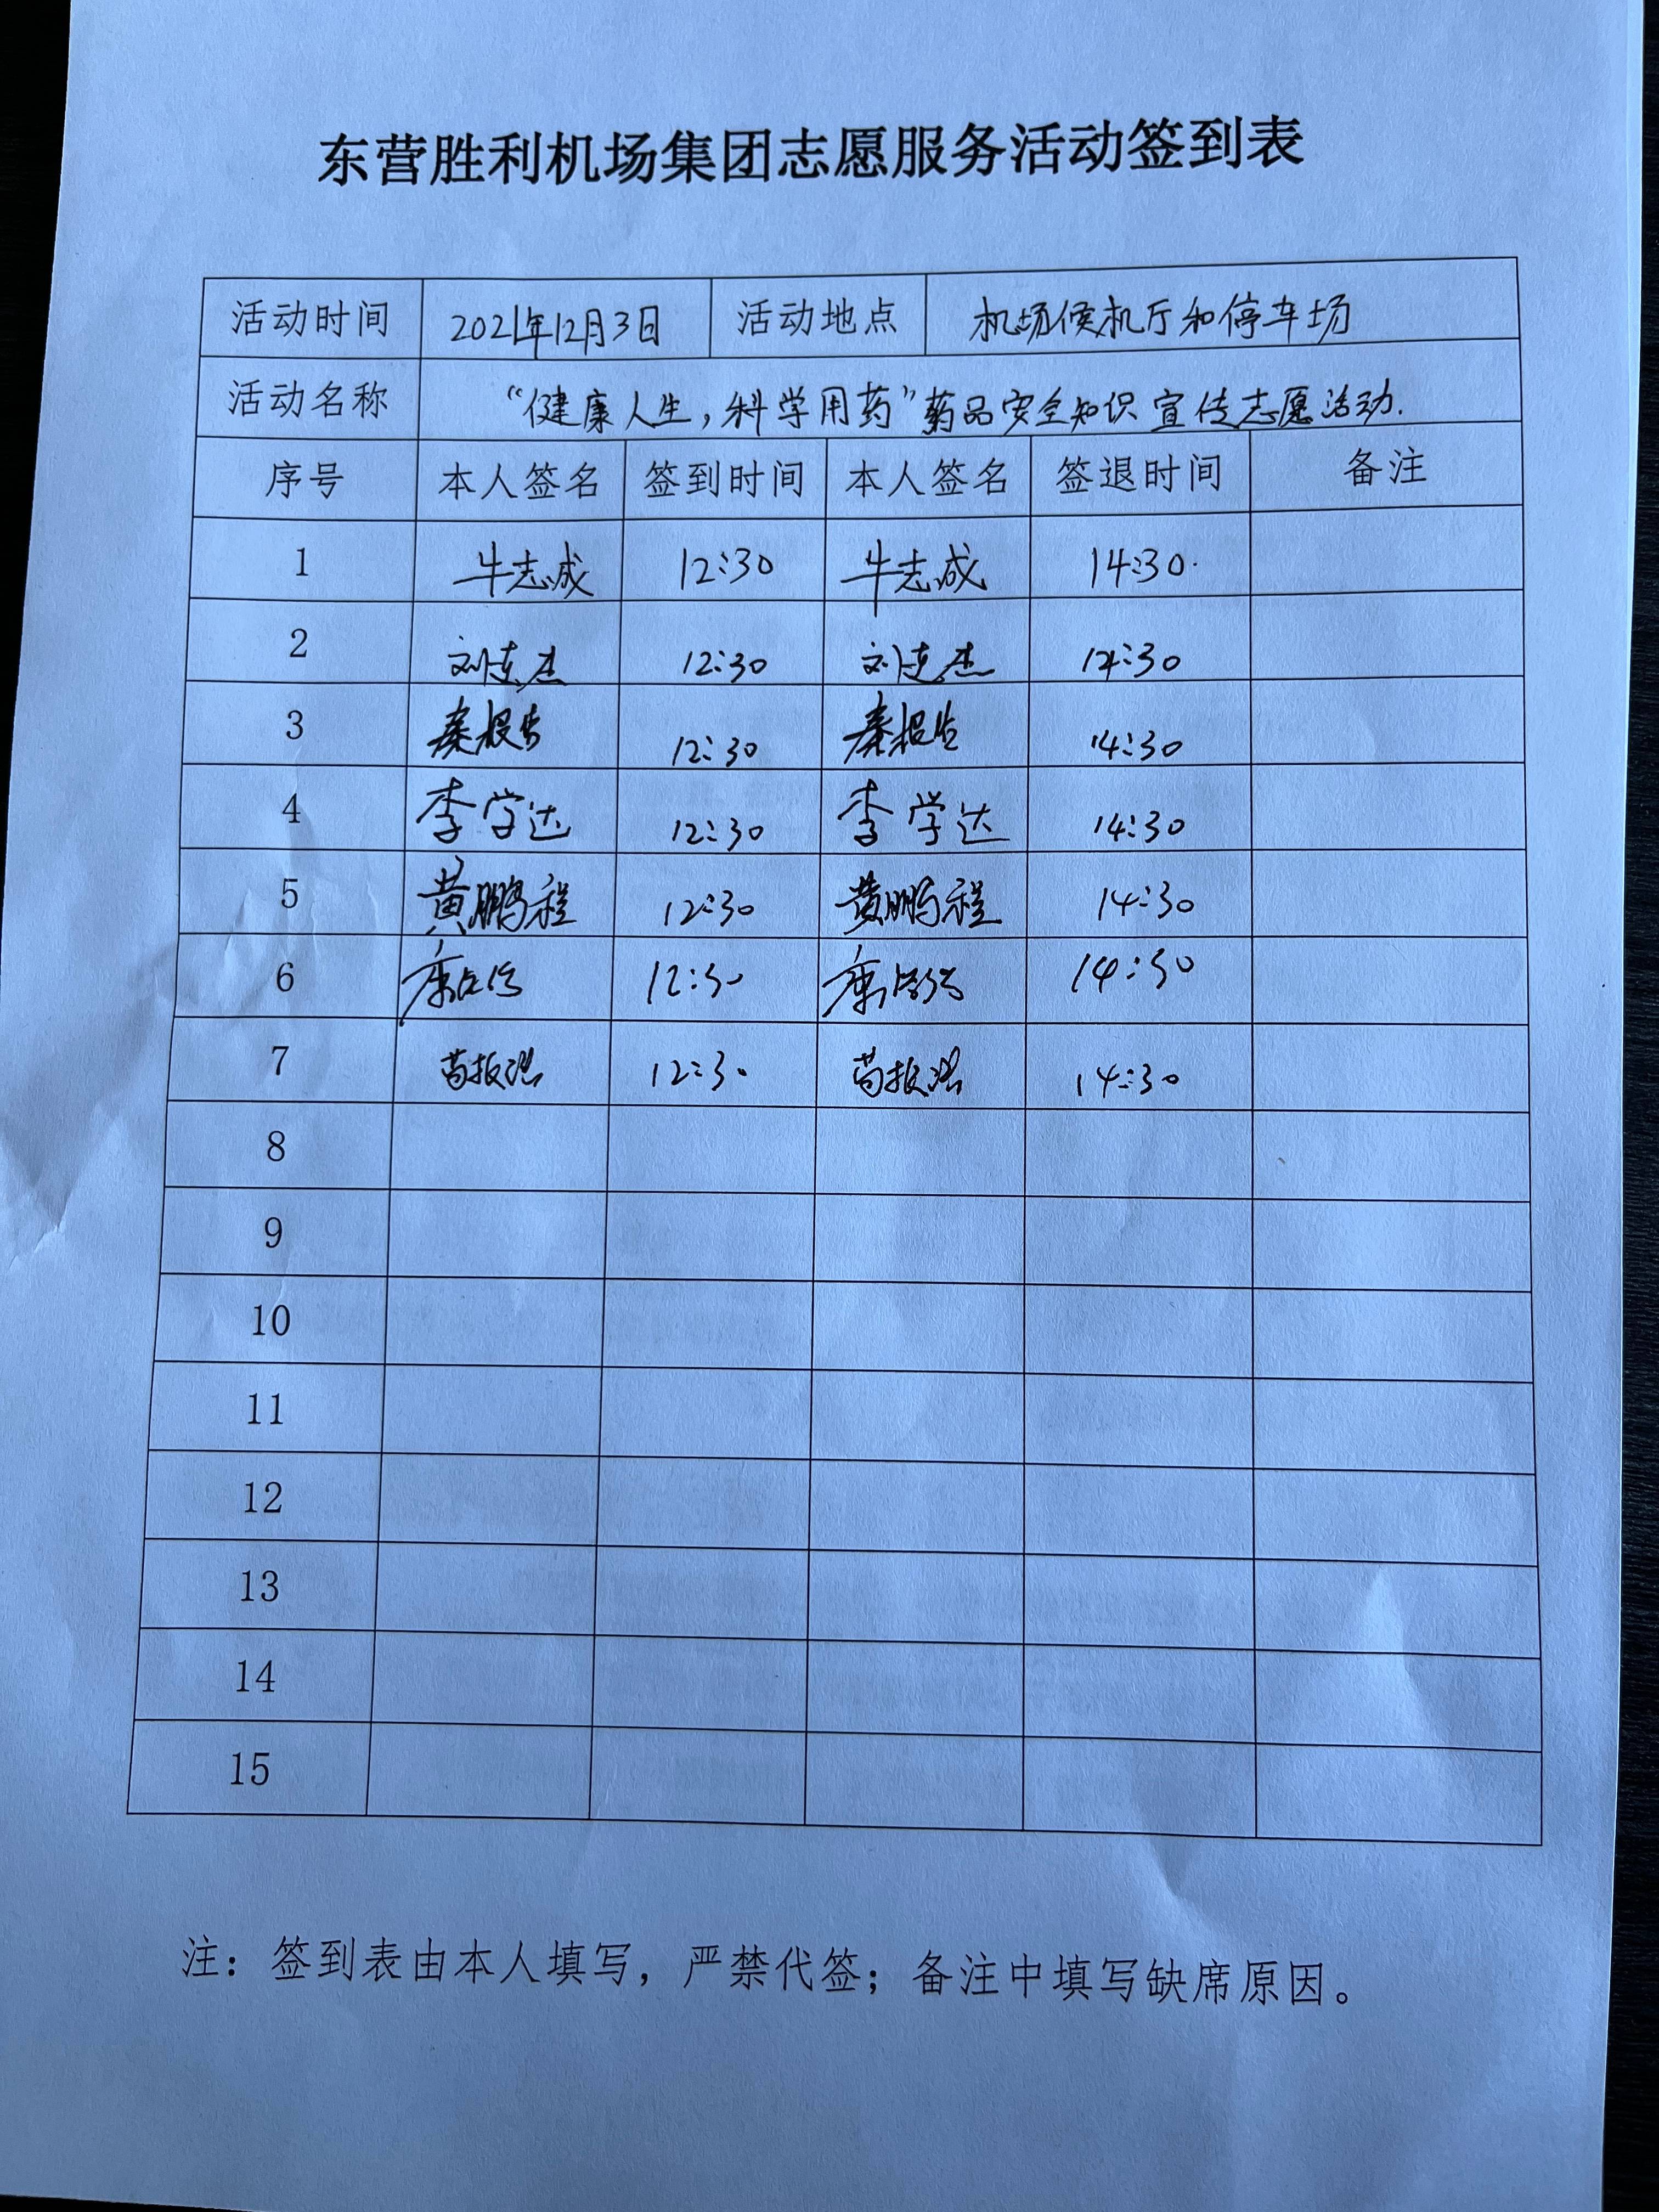 东营胜利机场集团志愿服务活动签到表
活动时间 2021年12月3日 活动地点 机场候机厅和停车场
活动名称 “健康人生，科学用药”药品安全知识宣传志愿活动.
序号 本人签名 签到时间 本人签名 签退时间 备注
1 牛志成 12:30 牛志成 14:30
2 12:30 14:30
3 12:30 14:30
4 李学达 12:30 李学达 14:30
5 黄鹏程 12:30 黄鹏程 14:30
6 12:30 14:30
7 12:30 14:30
8
9
10
11
12
13
14
15
注：签到表由本人填写，严禁代签；备注中填写缺席原因。